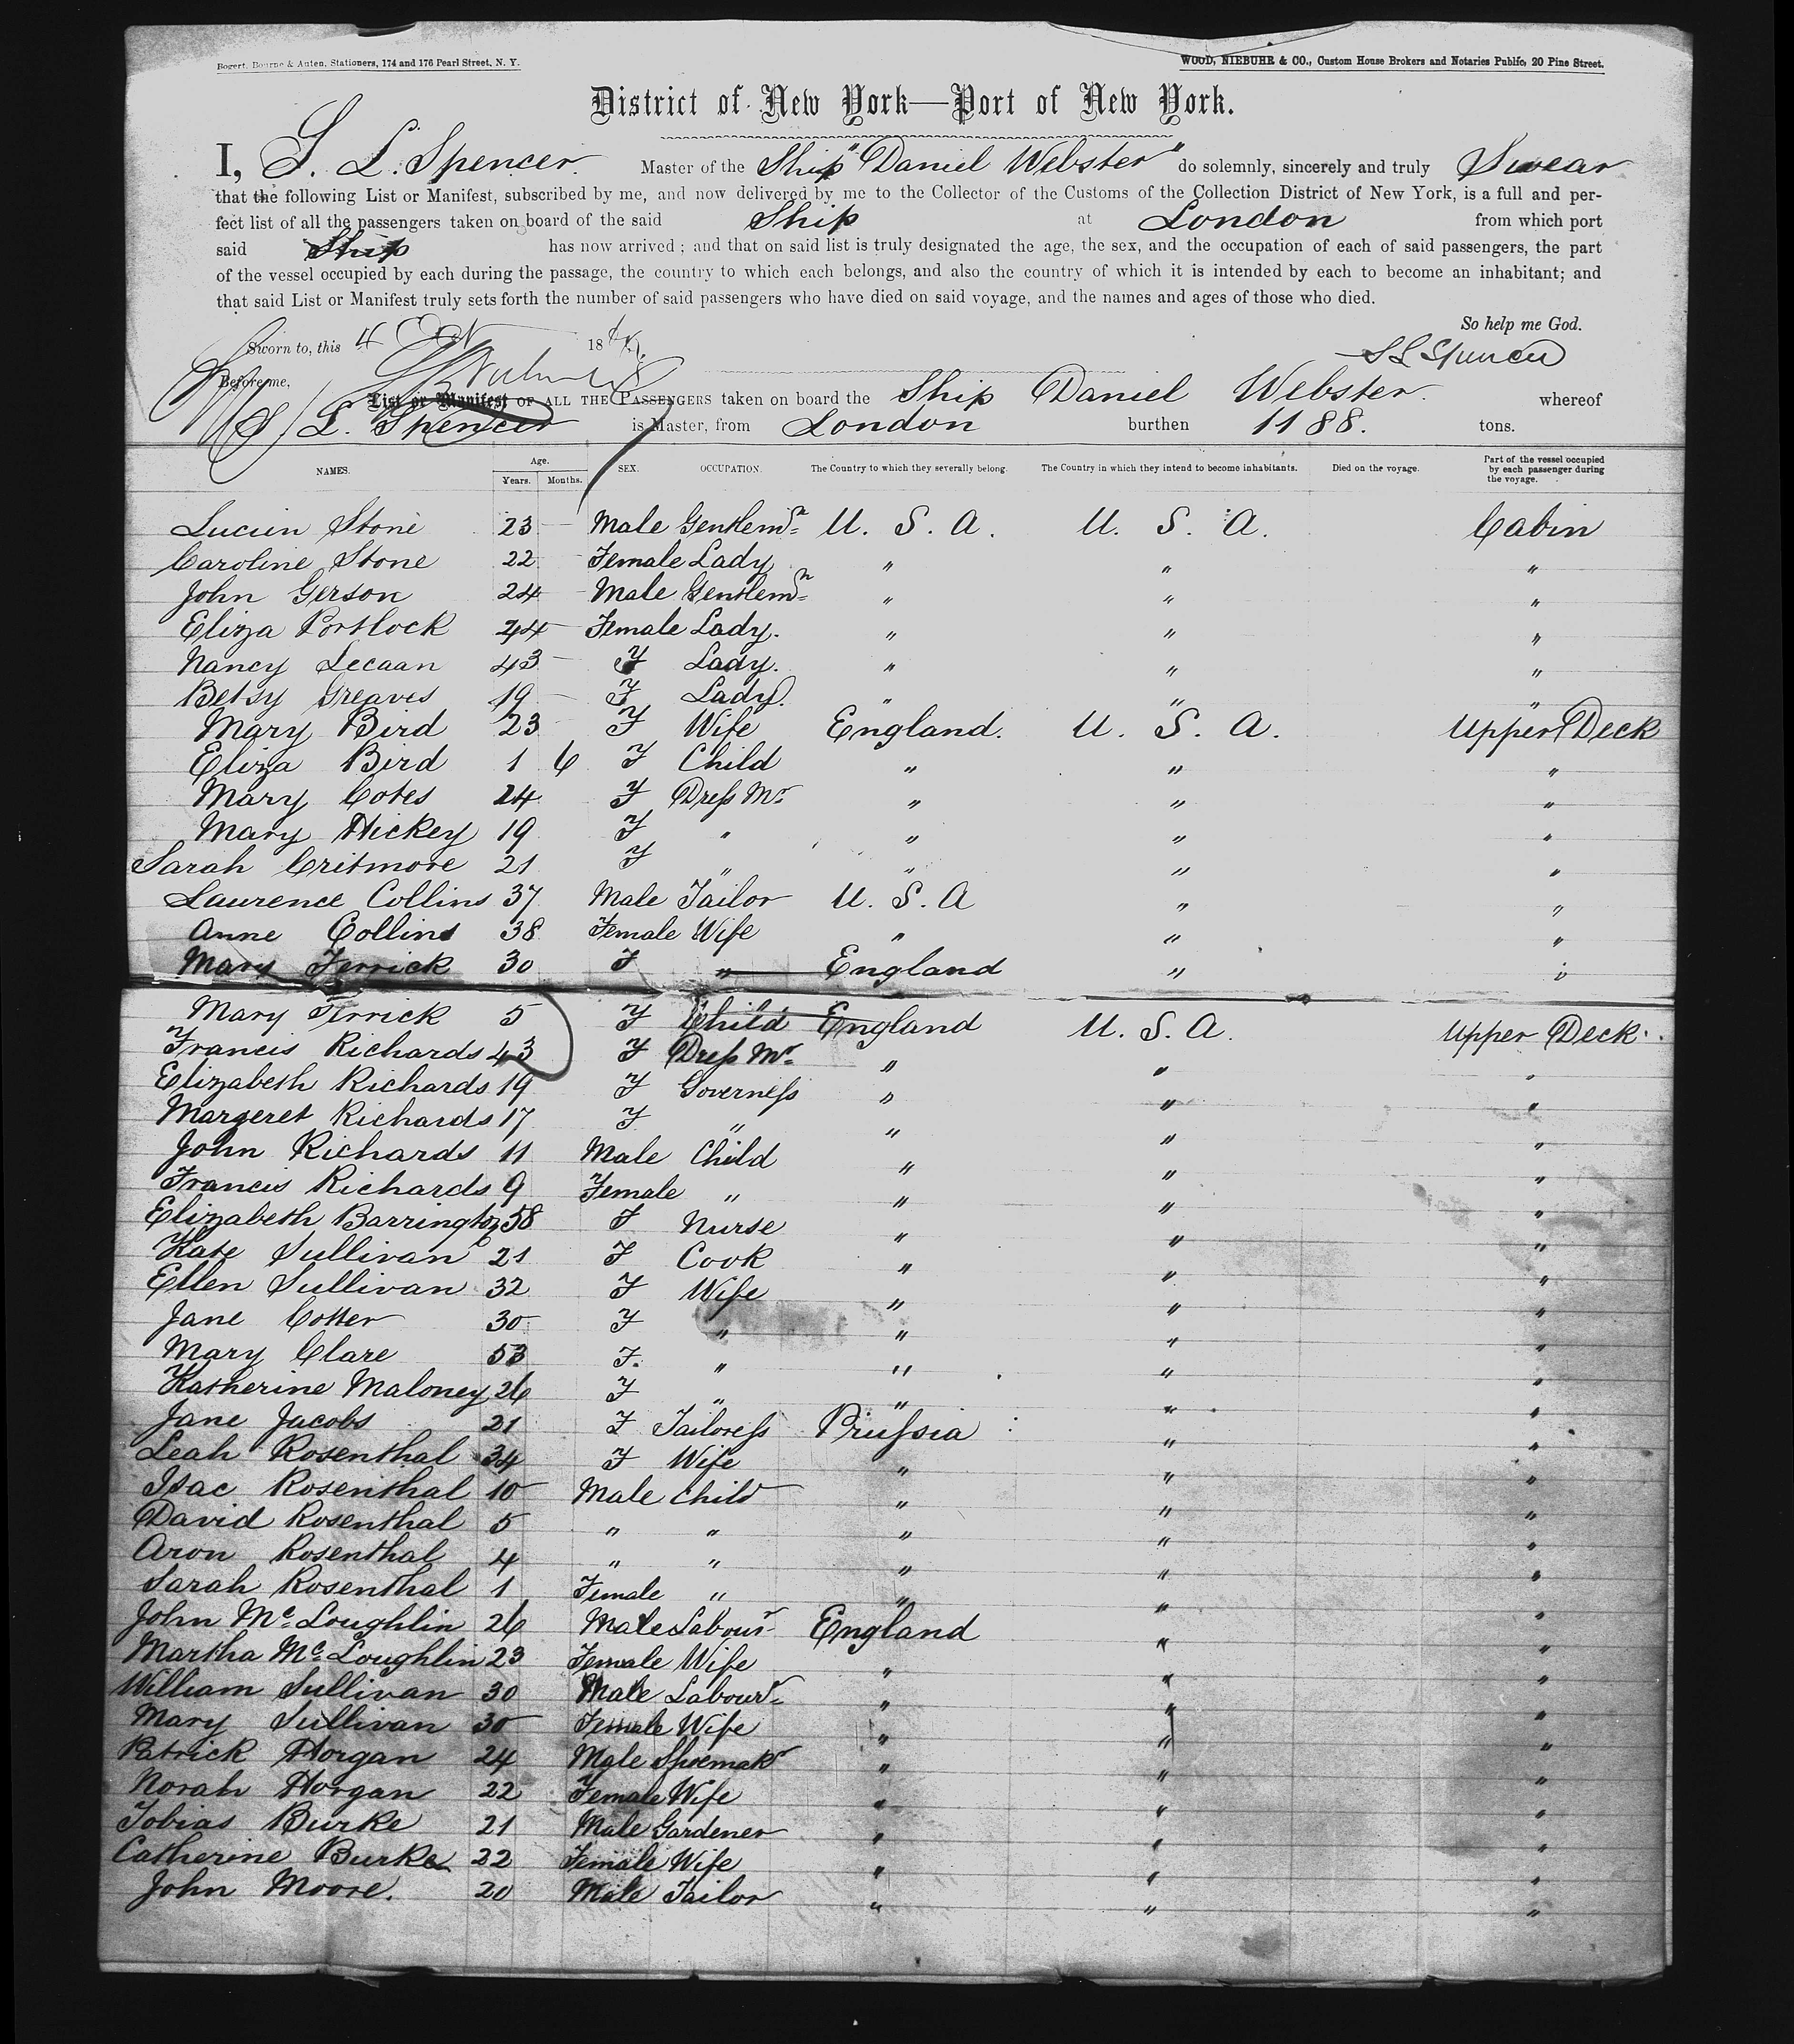 Bogert, Bourne & Auten, Stationers, 174 and 176 Pearl Street, N. Y.
WOOD, NIEBUHR & CO., Custom House Brokers and Notaries Public, 20 Pine Street.
District of New York—Port of New York.
I, S. L. Spencer. Master of the Ship "Daniel Webster" do solemnly, sincerely and truly Swear
that the following List or Manifest, subscribed by me, and now delivered by me to the Collector of the Customs of the Collection District of New York, is a full and per-
fect list of all the passengers taken on board of the said Ship at London from which port
said Ship has now arrived; and that on said list is truly designated the age, the sex, and the occupation of each of said passengers, the part
of the vessel occupied by each during the passage, the country to which each belongs, and also the country of which it is intended by each to become an inhabitant; and
that said List or Manifest truly sets forth the number of said passengers who have died on said voyage, and the names and ages of those who died.
So help me God.
Sworn to, this 4 Oct 18
S L Spencer
Before me,
List or Manifest OF ALL THE PASSENGERS taken on board the Ship Daniel Webster. whereof
S. L. Spencer is Master, from London burthen 1188. tons.
NAMES. Age. Years. Months. SEX. OCCUPATION. The Country to which they severally belong. The Country in which they intend to become inhabitants. Died on the voyage. Part of the vessel occupied by each passenger during the voyage.
Lucien Stone 23 Male Gentlemn U. S. A. U. S. A. Cabin
Caroline Stone 22 Female Lady " " "
John Gerson 24 Male Gentlemn " " "
Eliza Portlock 44 Female Lady. " " "
Nancy Lecaan 43 F Lady. " " "
Betsy Greaves 19 F Lady. " " "
Mary Bird 23 F Wife England. U. S. A. Upper Deck
Eliza Bird 1 6 F Child " " "
Mary Cotes 24 F Dress Mr " " "
Mary Hickey 19 F " " " "
Sarah Critmore 21 F " " " "
Laurence Collins 37 Male Tailor U. S. A " "
Anne Collins 38 Female Wife " " "
Mary Ferrick 30 F " England " "
Mary Ferrick 5 F Child England U. S. A. Upper Deck.
Francis Richards 43 F Dress Mr " " "
Elizabeth Richards 19 F Governess " " "
Margeret Richards 17 F " " " "
John Richards 11 Male Child " " "
Francis Richards 9 Female " " " "
Elizabeth Barrington 58 F Nurse " " "
Kate Sullivan 21 F Cook " " "
Ellen Sullivan 32 F Wife " " "
Jane Cotter 30 F " " " "
Mary Clare 53 F. " " " "
Katherine Maloney 26 F " " " "
Jane Jacobs 21 F Tailoress Prussia " "
Leah Rosenthal 34 F Wife " " "
Isac Rosenthal 10 Male Child " " "
David Rosenthal 5 " " " " "
Aron Rosenthal 4 " " " " "
Sarah Rosenthal 1 Female " " " "
John Mc Loughlin 26 Male Labourr England " "
Martha Mc Loughlin 23 Female Wife " " "
William Sullivan 30 Male Labourr " " "
Mary Sullivan 30 Female Wife " " "
Patrick Horgan 24 Male Shoemakr " " "
Norah Horgan 22 Female Wife " " "
Tobias Burke 21 Male Gardener " " "
Catherine Burke 22 Female Wife " " "
John Moore. 20 Male Tailor " " "